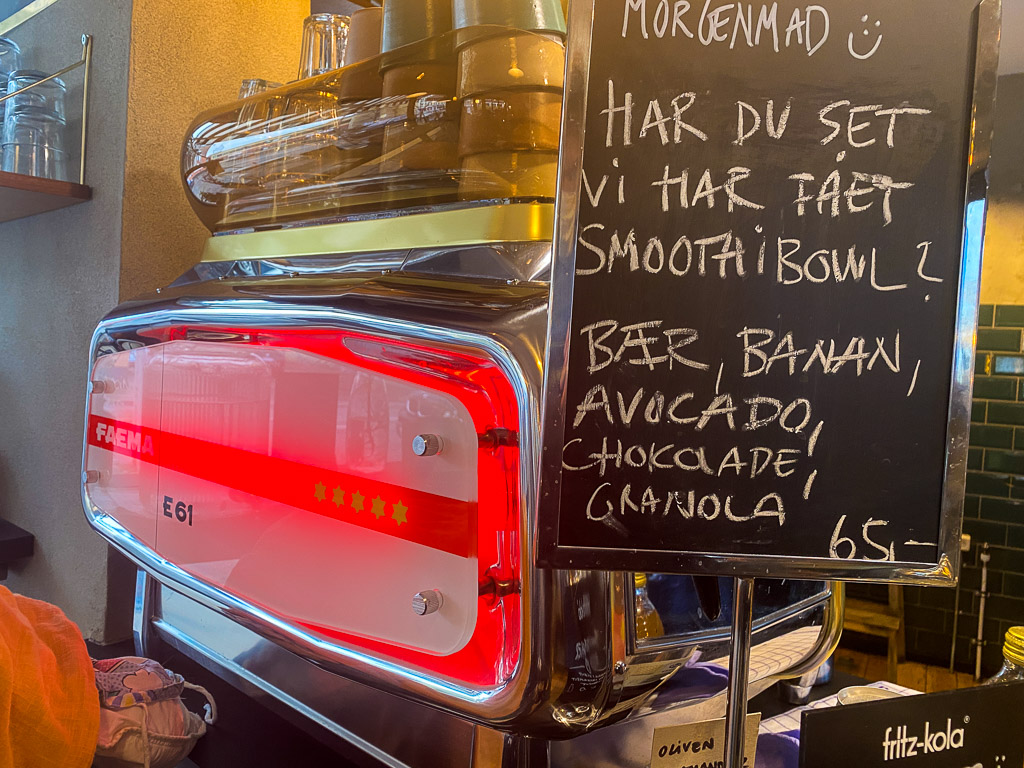 MORGENMAD
HAR DU SET
VI HAR FÅET
SMOOTHiBOWL?
BÆR, BANAN,
AVOCADO,
CHOKOLADE,
GRANOLA
65,-
FAEMA
E61
OLIVEN
fritz-kola®